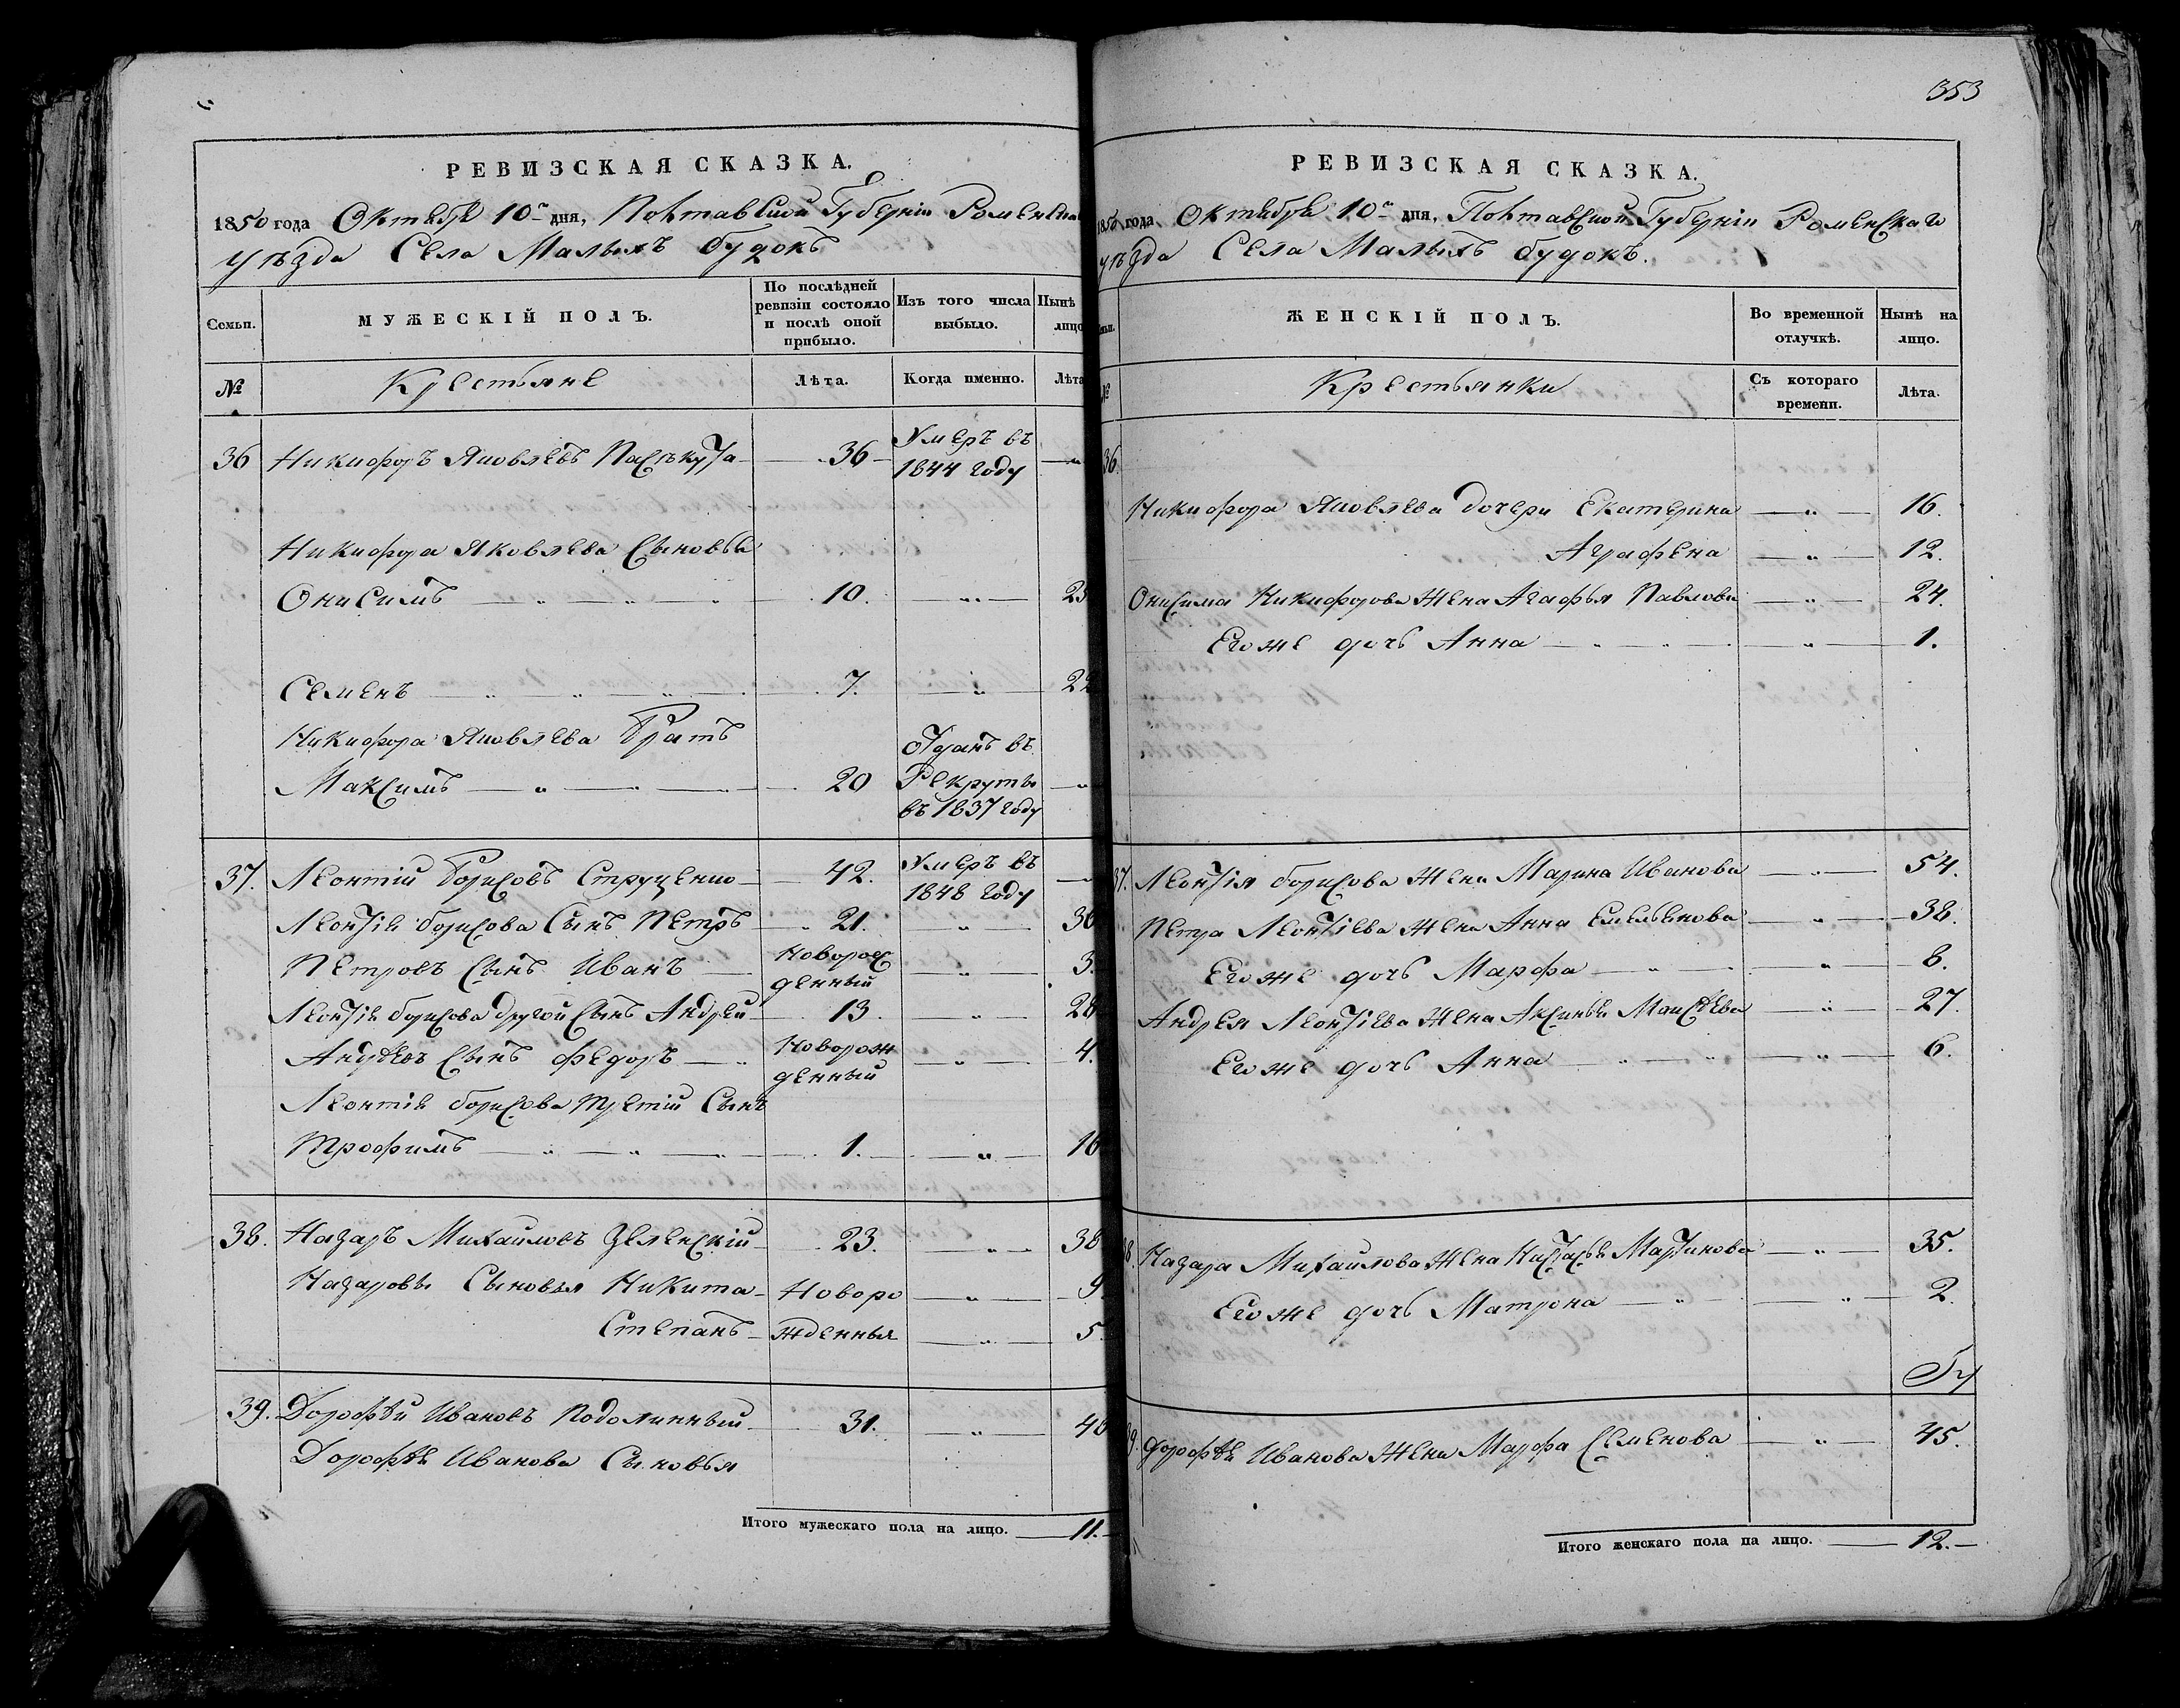 РЕВИЗСКАЯ СКАЗКА.
1850 года Октября 10го дня, Полтавской Губерніи Роменска
уѣзда Села Малыхъ будокъ
Семьи. МУЖЕСКІЙ ПОЛЪ. По послѣдней ревизіи состояло и послѣ оной прибыло. Изъ того числа выбыло. Нынѣ лицо
№ Крестьяне Лѣта. Когда именно. Лѣта
36 Никифоръ Яковлевъ 36 Умеръ въ 1844 году
Никифора Яковлева Сыновья
Онисимъ 10. 25
Семенъ 7. 22
Никифора Яковлева Братъ
Максимъ 20 Отданъ въ Рекруты въ 1837 году
37. Леонтій Борисовъ Струценко 42. Умеръ въ 1848 году
Леонтія борисова Сынъ Петръ 21. 36
Петровъ Сынъ Иванъ Новорож денный 3.
Леонтія борисова другой Сынъ Андрей 13. 28
Андреевъ Сынъ Федоръ Новорож денный 4.
Леонтія борисова третій Сынъ
Трофимъ 1. 16
38. Назаръ Михайловъ Зеленскій 23. 38
Назаровы Сыновья Никита Новоро 9
Степанъ жденныя 5.
39. Дорофѣй Ивановъ Подолинный 31. 46
Дорофѣя Иванова Сыновья
Итого мужескаго пола на лицо. 11.
353
РЕВИЗСКАЯ СКАЗКА.
1850 года Октября 10го дня, Полтавской Губерніи Роменскаго
уѣзда Села Малыхъ будокъ.
ЖЕНСКІЙ ПОЛЪ. Во временной отлучкѣ. Нынѣ на лицо.
№ Крестьянки Съ котораго времени. Лѣта.
36.
Никифора Яковлева дочери Екатерина 16.
Аграфена 12.
Онисима Никифорова Жена Агафья Павлова 24.
Его же дочь Анна 1.
37. Леонтія борисова Жена Марина Иванова 54.
Петра Леонтіева Жена Анна Емельянова 38.
Его же дочь Марфа 8.
Андрея Леонтіева Жена Аксинья Моисѣева 27.
Его же дочь Анна 6.
38. Назара Михайлова Жена Настасья Мартинова 35.
Его же дочь Матрона 2.
39. Дорофѣя Иванова Жена Марфа Семенова 45.
Итого женскаго пола на лицо. 12.